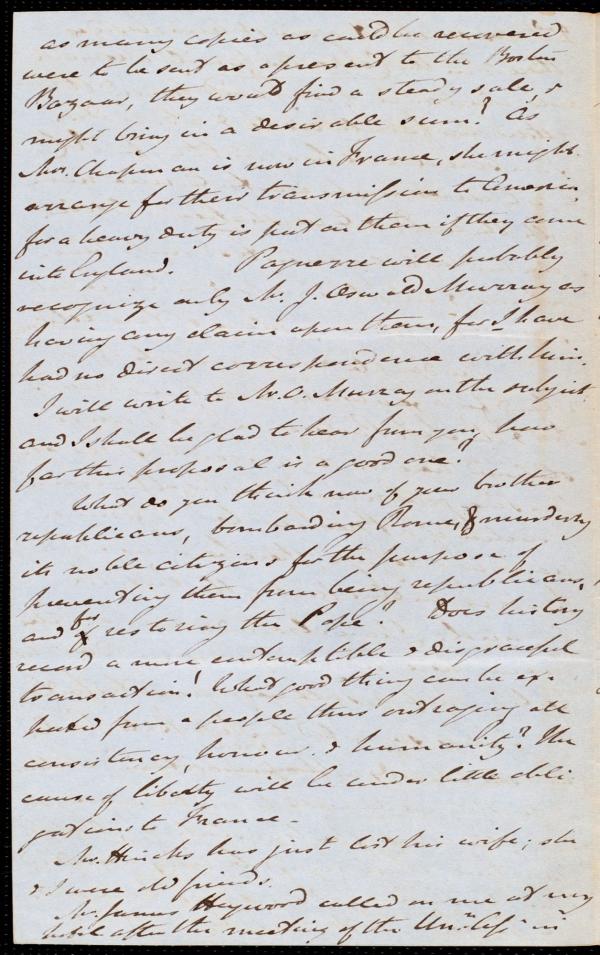 as many copies as could be recovered
were to be sent as a present to the Boston
Bazaar, they would find a steady sale, &
might bring in a desirable sum? As
Mrs. Chapman is now in France, she might
arrange for their transmission to America,
for a heavy duty is put on them if they come
into England. Pagnerre will probably
recognize only Mr. J. Oswald Murray as
having any claim upon them, for I have
had no direct correspondence with him.
I will write to Mr. O. Murray on the subject
and I shall be glad to hear from you how
far this proposal is a good one."
What do you think now of your brother
republicans, bombarding Rome, & murdering
its noble citizens for the purpose of
preventing them from being republicans,
and for restoring the Pope? Does history
record a more contemptible & disgraceful
transaction! What good thing can be ex-
pected from a people thus outraging all
consistency, honour & humanity? The
cause of liberty will be under little obli-
gations to France -
Mr. Hincks has just lost his wife; she
& I were old friends.
Mr. James Heywood called on me at my
hotel after the meeting of the Unn. Assn in